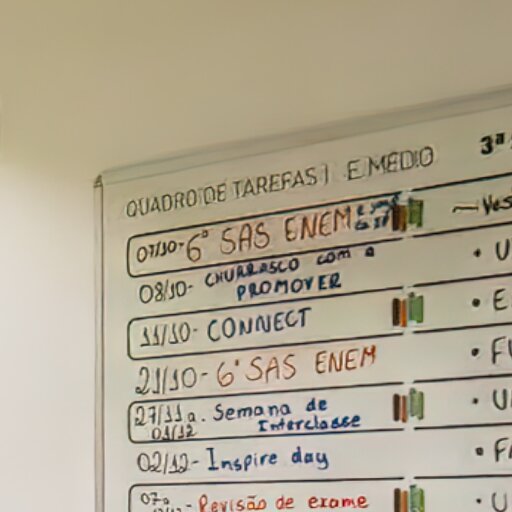 QUADRO DE TAREFAS E.MÉDIO 3ª
07/10- 6º SAS ENEM ~ Ves
08/10- CHURRASCO com a
PROMOVER
11/10- CONNECT
21/10- 6º SAS ENEM
27/11 a. Semana de
01/12 Interclasse
02/12- Inspire day
07 a - Revisão de exame